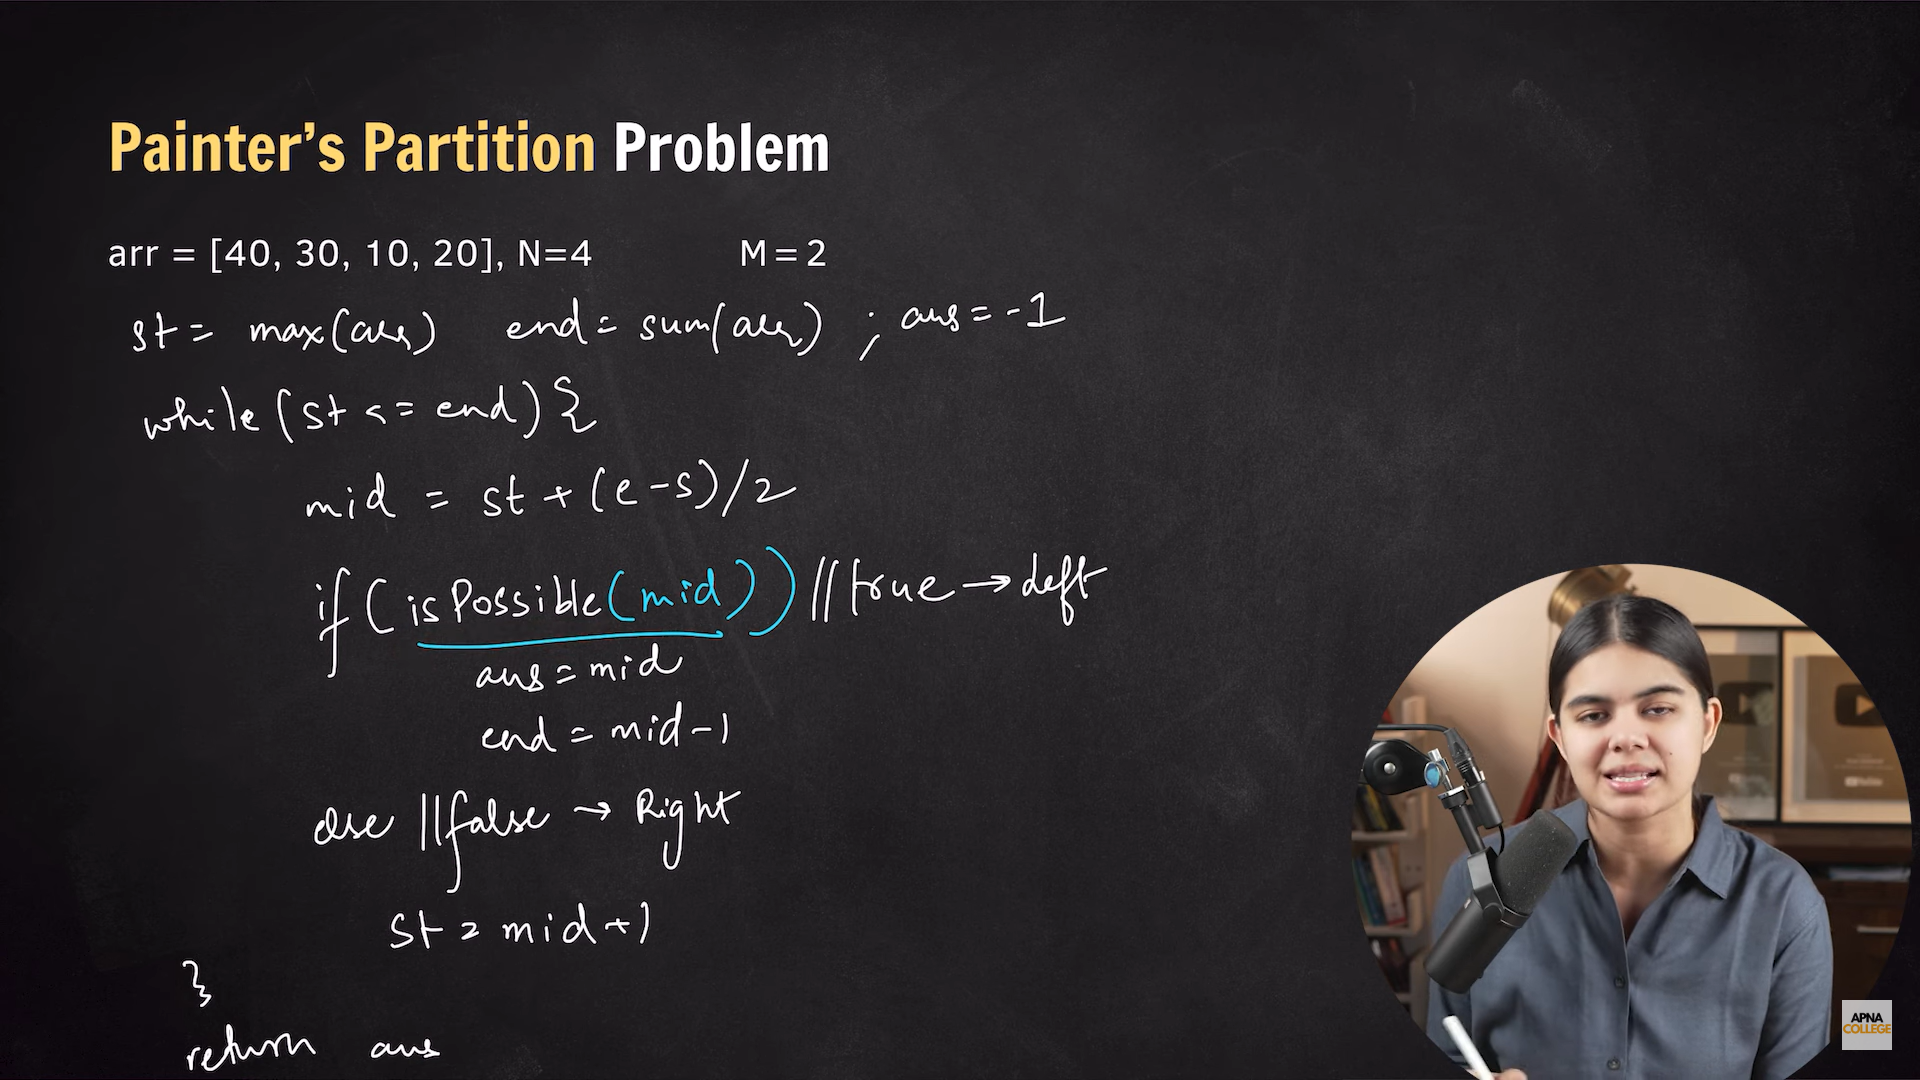 Painter's Partition Problem
arr = [40, 30, 10, 20], N=4 M = 2
st = max(arr) end = sum(arr) ; ans = -1
while (st <= end) {
mid = st + (e-s)/2
if ( isPossible(mid)) // true → left
ans = mid
end = mid-1
else // false → Right
st = mid+1
}
return ans
APNA
COLLEGE